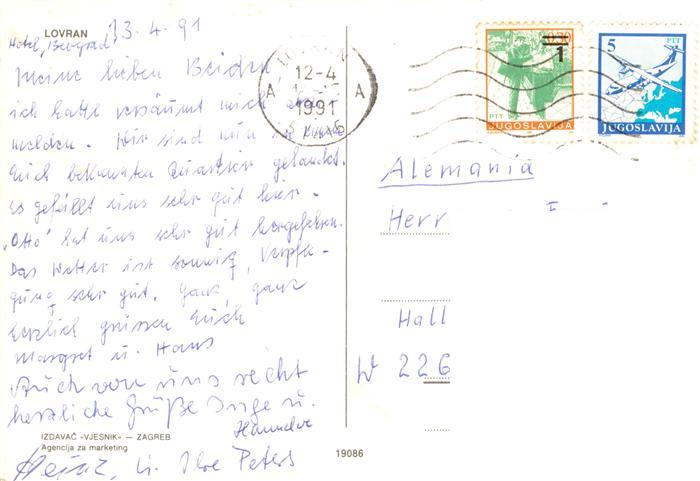 LOVRAN
13.4.91
Hotel "Beograd"
Meine lieben Beiden,
ich hatte versäumt mich
melden. Wir sind nun in
Euch bekannten Quartier gelandet.
Es gefällt uns sehr gut hier.
"Otto" hat uns sehr gut hergefahren.
Das Wetter ist sonnig, Verpfle-
gung sehr gut. Ganz, ganz
herzlich grüssen Euch
Margret u. Hans
Auch von uns recht
herzliche Grüße Inge u.
Hannelore
Heinz, u. Ilse Peters
IZDAVAČ »VJESNIK« — ZAGREB
Agencija za marketing
19086
12-4
1991
A A
0.30
1
PTT
JUGOSLAVIJA
5
PTT
JUGOSLAVIJA
Alemania
Herr
Hall
W 226